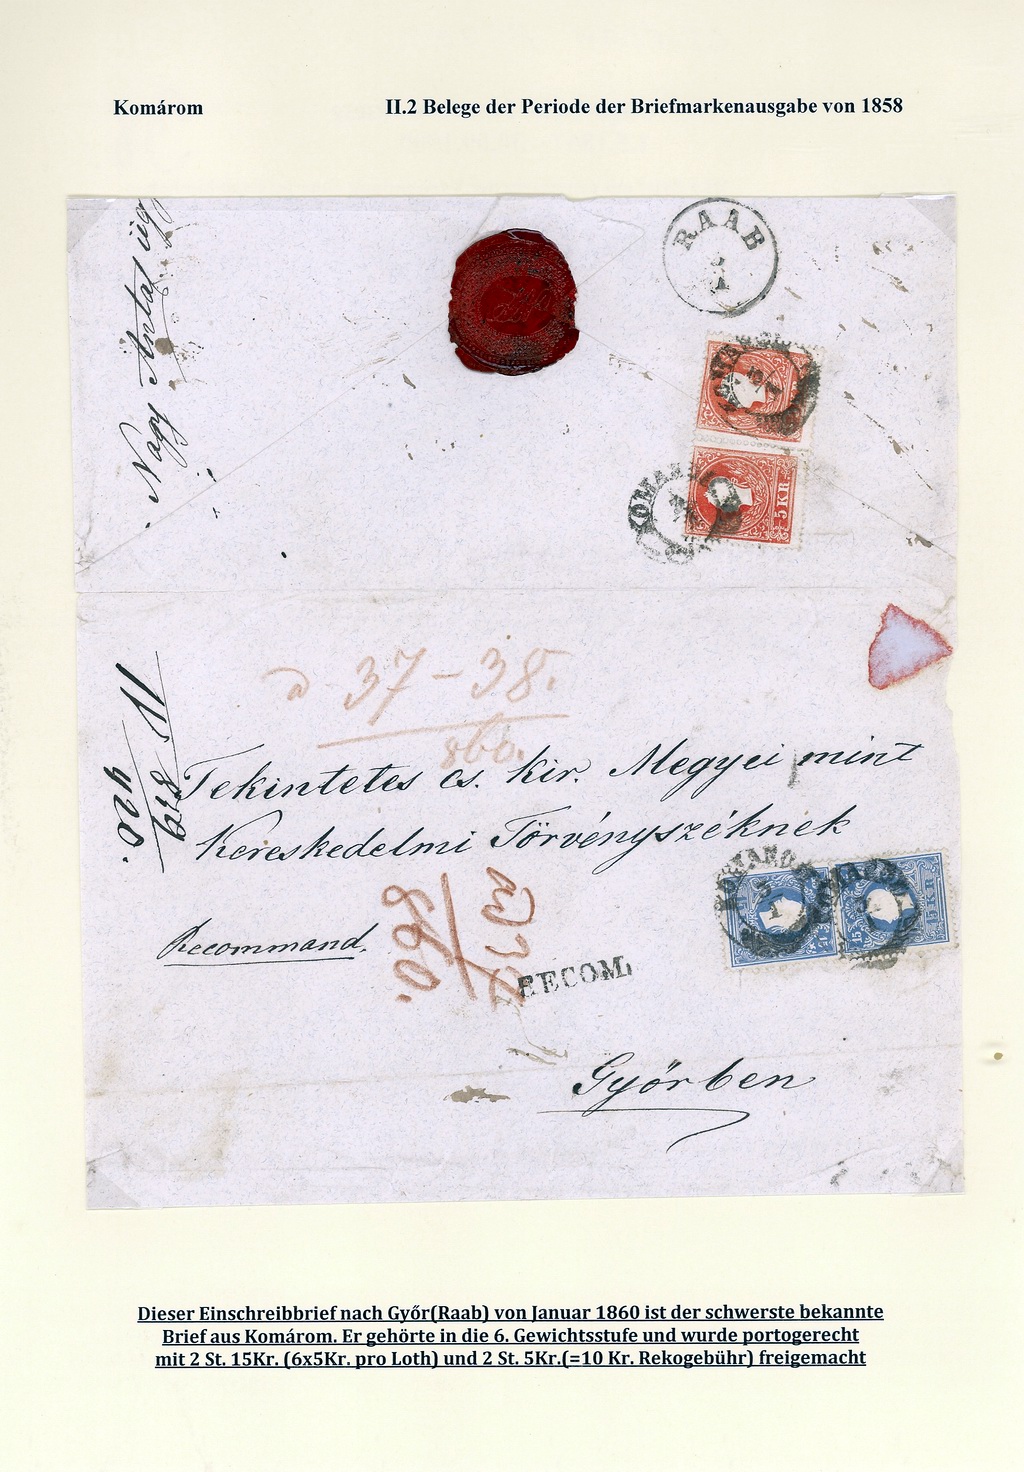 Komárom
II.2 Belege der Periode der Briefmarkenausgabe von 1858
Nagy Antal
RAAB
5 KR
KOMAR
37-38.
860.
Tekintetes cs. kir. Megyei mint
Kereskedelmi Törvényszéknek
KOMAROM
15 KR
Recommand.
860.
RECOM.
Győrben
Dieser Einschreibbrief nach Győr(Raab) von Januar 1860 ist der schwerste bekannte
Brief aus Komárom. Er gehörte in die 6. Gewichtsstufe und wurde portogerecht
mit 2 St. 15Kr. (6x5Kr. pro Loth) und 2 St. 5Kr.(=10 Kr. Rekogebühr) freigemacht